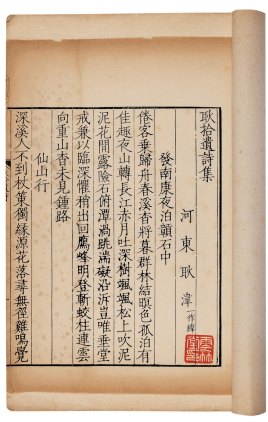 耿拾遺詩集
河東耿湋一作緯
發南康夜泊灨石中
倦客乘歸舟春溪杳將暮群林結暝色孤泊有
佳趣夜山轉長江赤月吐深樹颯颯松上吹泥
泥花間露險石俯潭渦跳湍礙沿泝豈唯垂堂
戒兼以臨深懼稍出回鴈峰明登斬蛟柱連雲
向重山杳未見鍾路
仙山行
深溪人不到杖策獨緣源花落尋無徑雞鳴覺